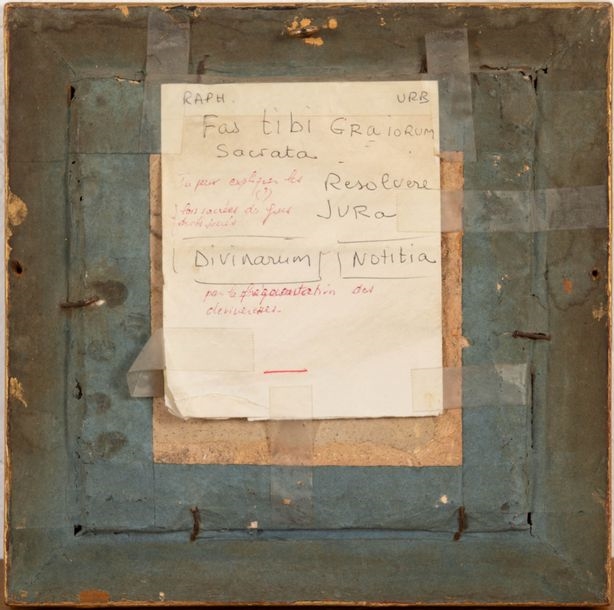 RAPH. URB
Fas tibi GRaIORUM
Sacrata
Tu peux expliquer les
(?)
Resolvere
lois sacrées de
JURa
Divinarum Notitia
par la des